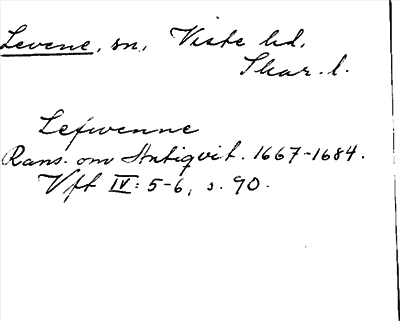 Levene, sn, Viste hd,
Skar. l.
Lefwenne
Rans. om Antiqvit. 1667-1684.
Vft IV: 5-6, s. 90.